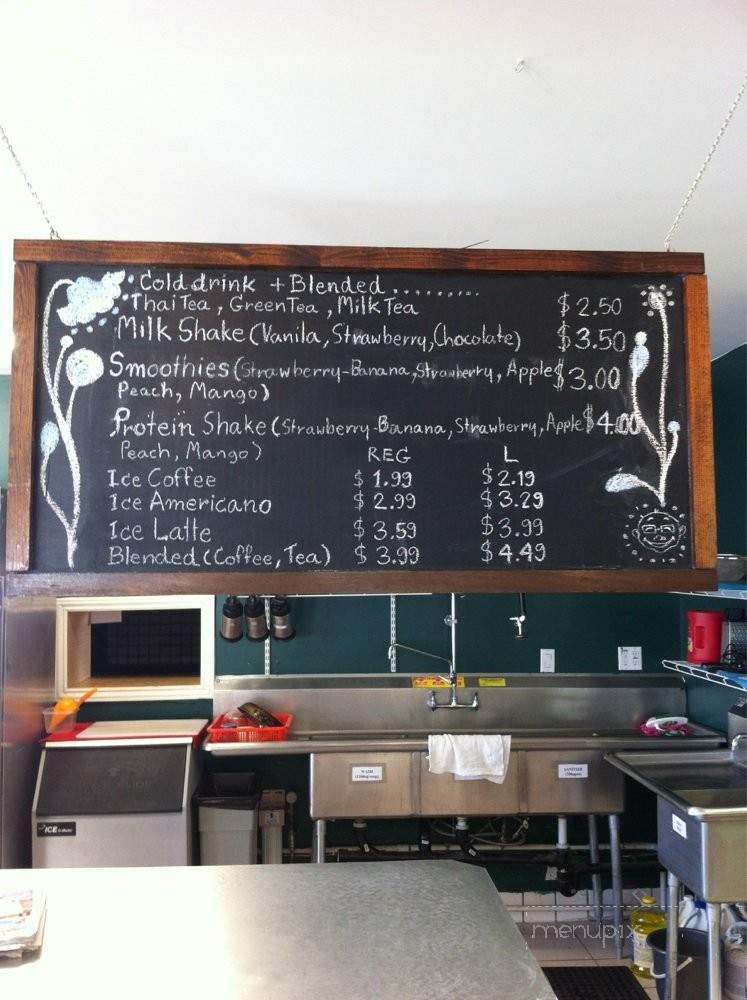 Cold drink + Blended ..........
Thai Tea, Green Tea, Milk Tea $2.50
Milk Shake (Vanila, Strawberry, Chocolate) $3.50
Smoothies (Strawberry-Banana, Strawberry, Apple $3.00
Peach, Mango)
Protein Shake (Strawberry-Banana, Strawberry, Apple $4.00
Peach, Mango)
REG L
Ice Coffee $1.99 $2.19
Ice Americano $2.99 $3.29
Ice Latte $3.59 $3.99
Blended (Coffee, Tea) $3.99 $4.49
WASH
SANITIZE
ICE
menupix